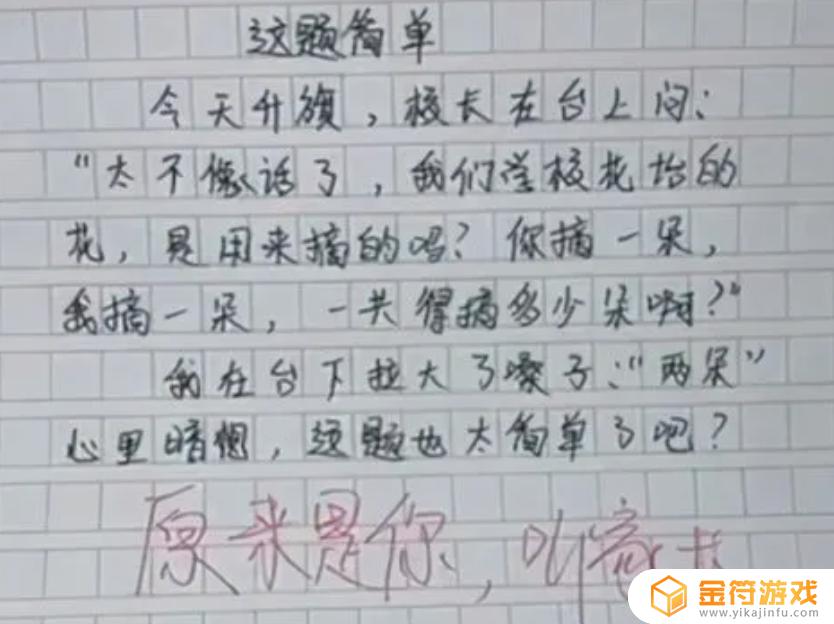 这题简单
今天升旗，校长在台上问：
“太不像话了，我们学校花坮的
花，是用来摘的吗？你摘一朵，
我摘一朵，一共得摘多少朵啊？”
我在台下拉大了嗓子：“两朵”
心里暗想，这题也太简单了吧？
原来是你，叫家长
金符游戏
www.yikajinfu.com